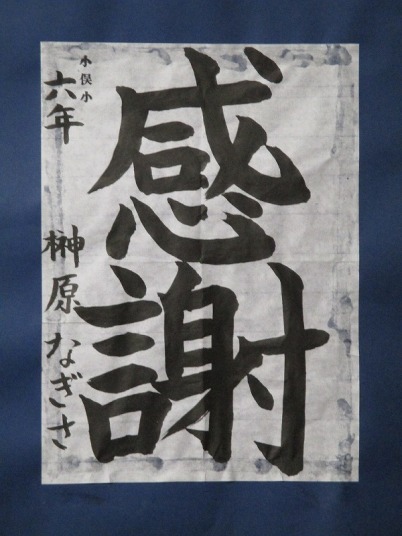 感謝
小俣小
六年 榊原なぎさ